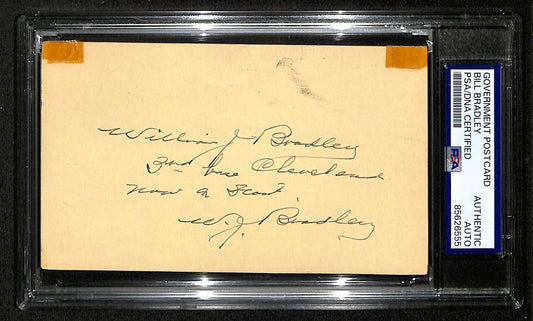 William J Bradley
3rd base Cleveland
now a Scout
W. J. Bradley
GOVERNMENT POSTCARD
BILL BRADLEY
PSA/DNA CERTIFIED
AUTHENTIC
AUTO
85626555
PSA